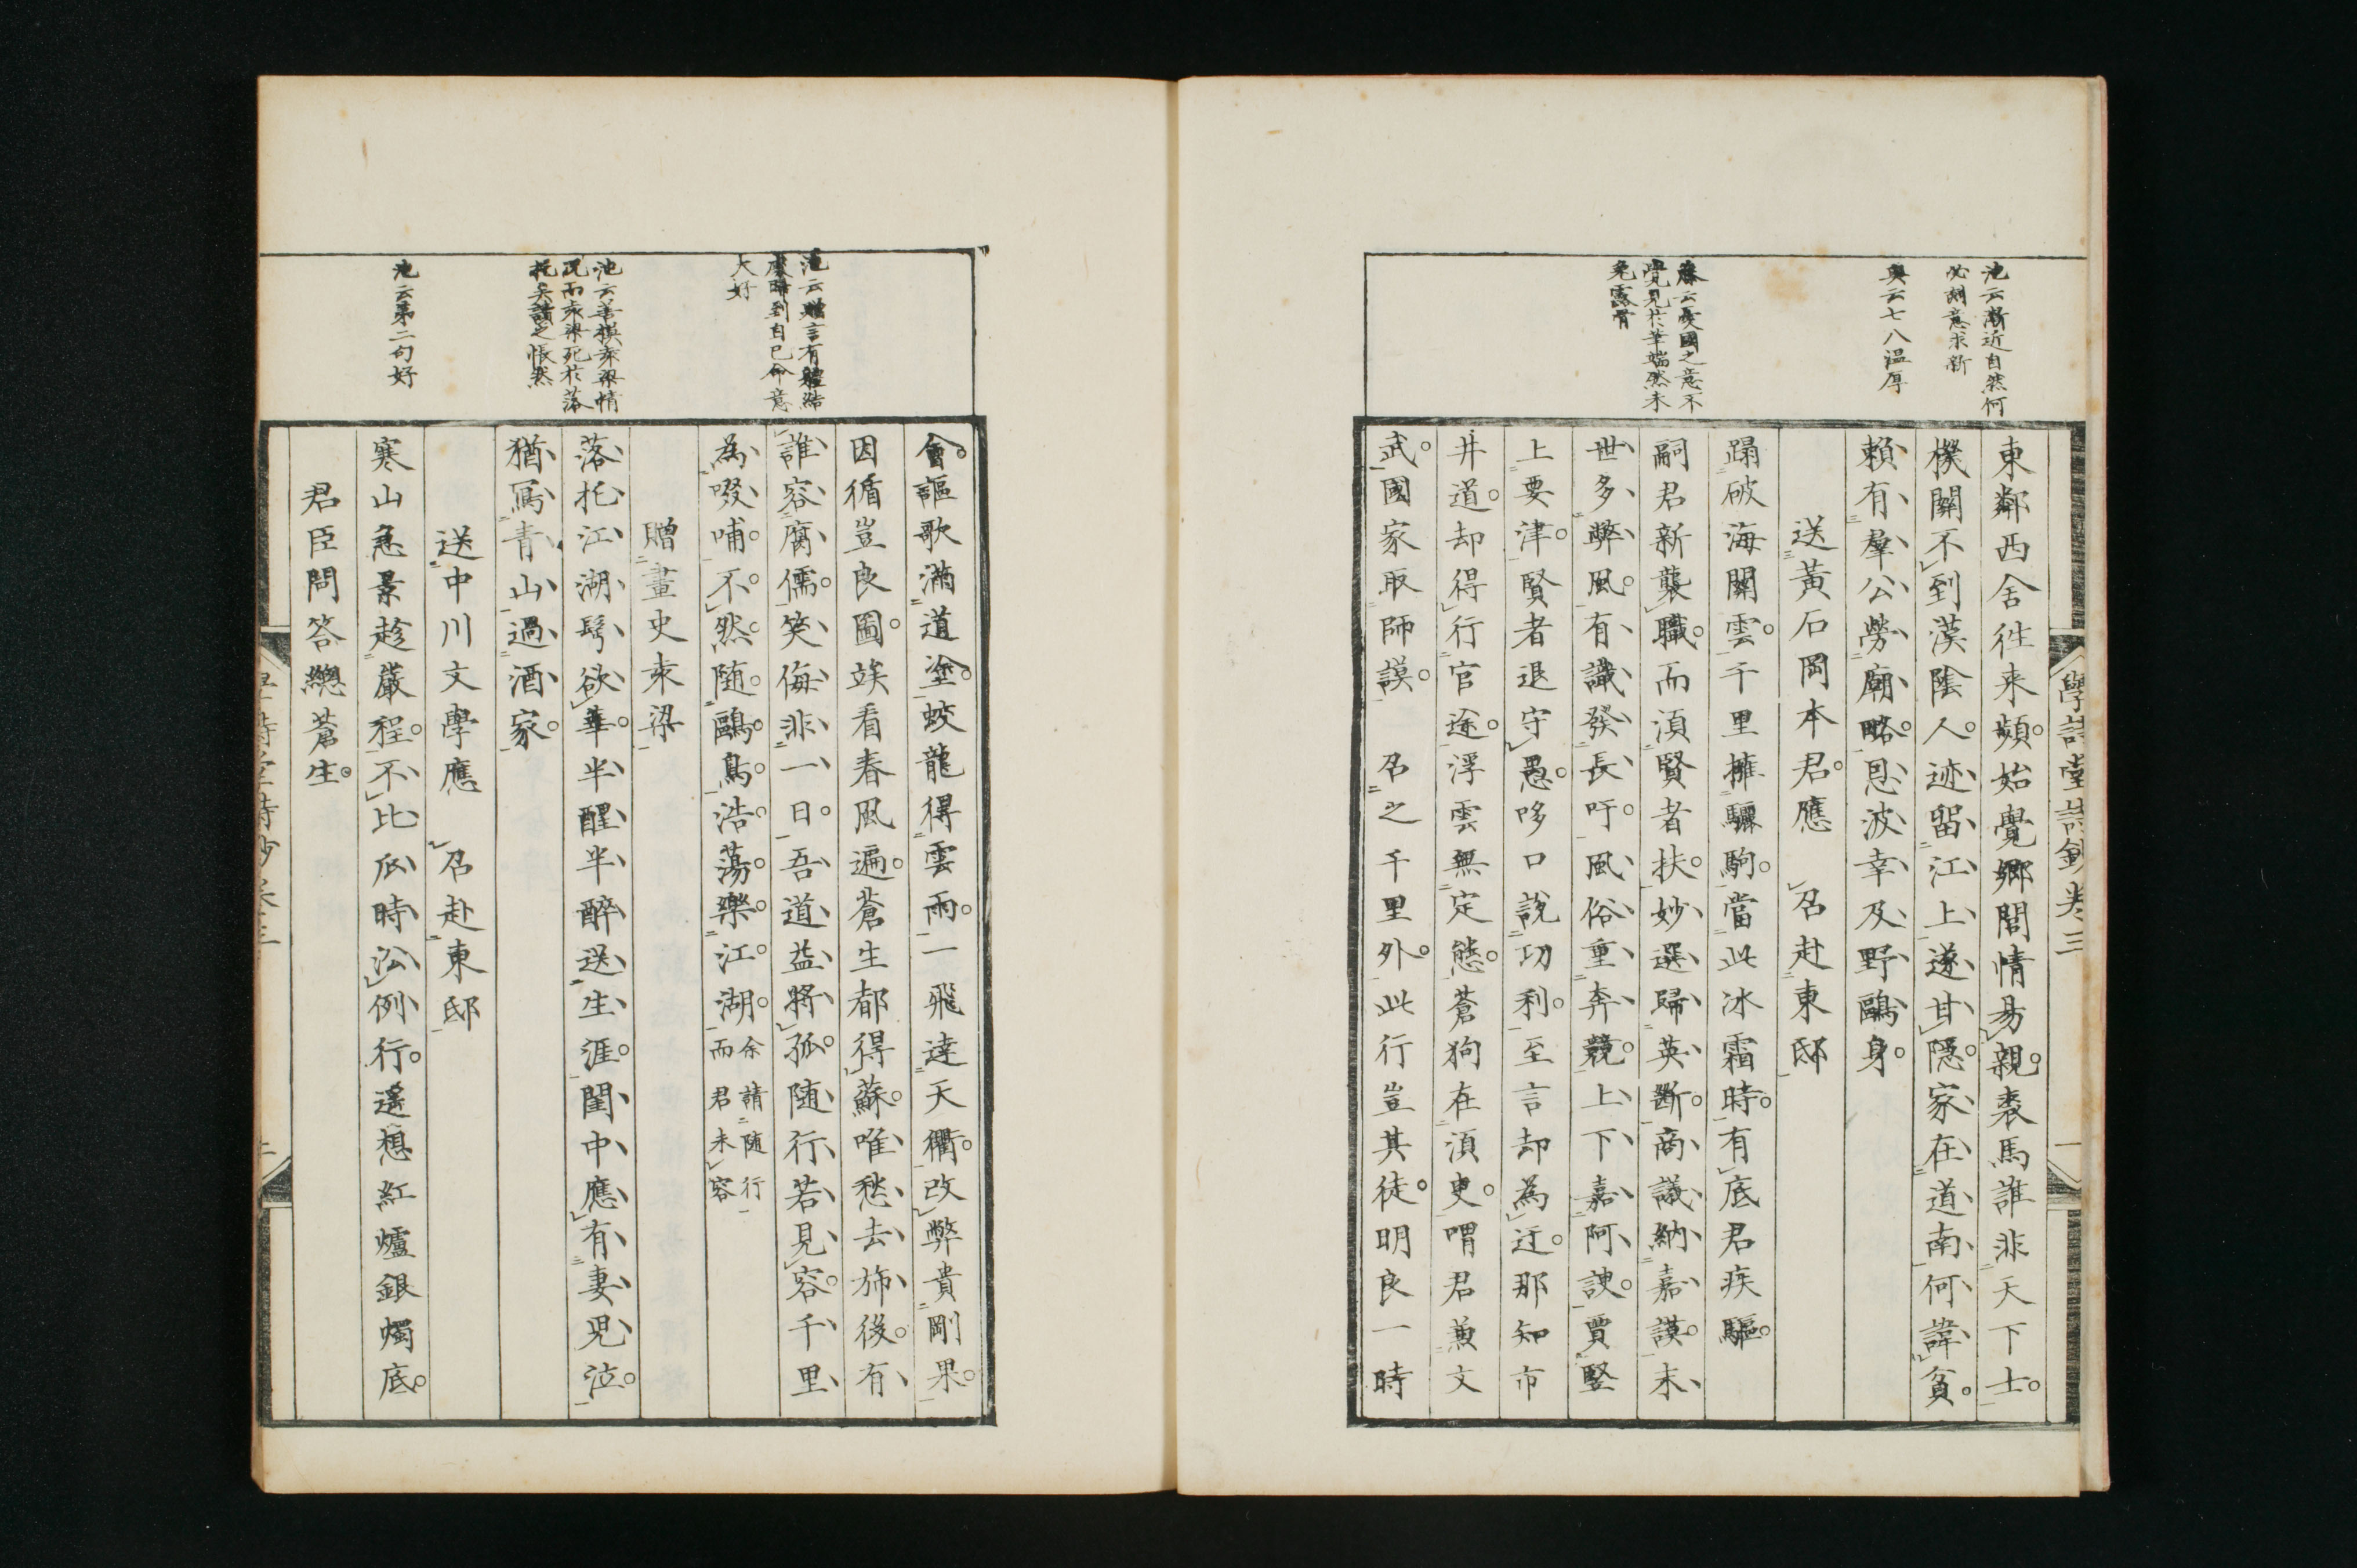 池云漸近自然何
必刻意求新
奥云七八温厚
藤云憂國之意不
覺見於筆端然未
免露骨
學詩堂詩鈔卷三
東鄰西舍徃来頻始覺鄉閭情易親裘馬誰非天下士
機關不到漢陰人迹留江上遂甘隱家在道南何諱貧
賴有羣公勞廟略恩波幸及野鷗身
送黃石岡本君應 召赴東邸
蹋破海關雲千里擁驪駒當此冰霜時有底君疾驅
嗣君新襲職而須賢者扶妙選歸英斷商議納嘉謨末
世多弊風有識發長吁風俗重奔競上下嘉阿諛賈豎
上要津賢者退守愚哆口說功利至言却為迂那知市
井道却得行官途浮雲無定態蒼狗在須臾喟君兼文
武國家取師謨 召之千里外此行豈其徒明良一時
會謳歌滿道塗蛟龍得雲雨一飛達天衢改弊貴剛果
因循豈良圖竢看春風遍蒼生都得蘇唯愁去旆後有
誰容腐儒笑侮非一日吾道益將孤随行若見容千里
為啜哺不然随鷗鳥浩蕩樂江湖
余請随行
而君未容
贈畫史亲梁
落托江湖髩欲華半醒半醉送生涯閨中應有妻兒泣
猶寫青山過酒家
送中川文學應 召赴東邸
寒山急景趁嚴程不比瓜時㳂例行遥想紅爐銀燭底
君臣問答總蒼生
池云贈言有體結
處歸到自己命意
大好
池云善摸亲梁情
況而亲梁死於落
托矣讀之悵然
池云第二句好